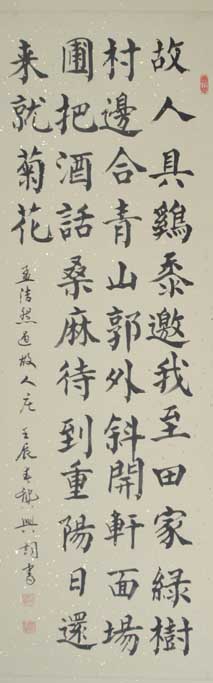 故人具鷄黍邀我至田家綠樹
村邊合青山郭外斜開軒面場
圃把酒話桑麻待到重陽日還
来就菊花
孟浩然過故人庄 壬辰春 興 書